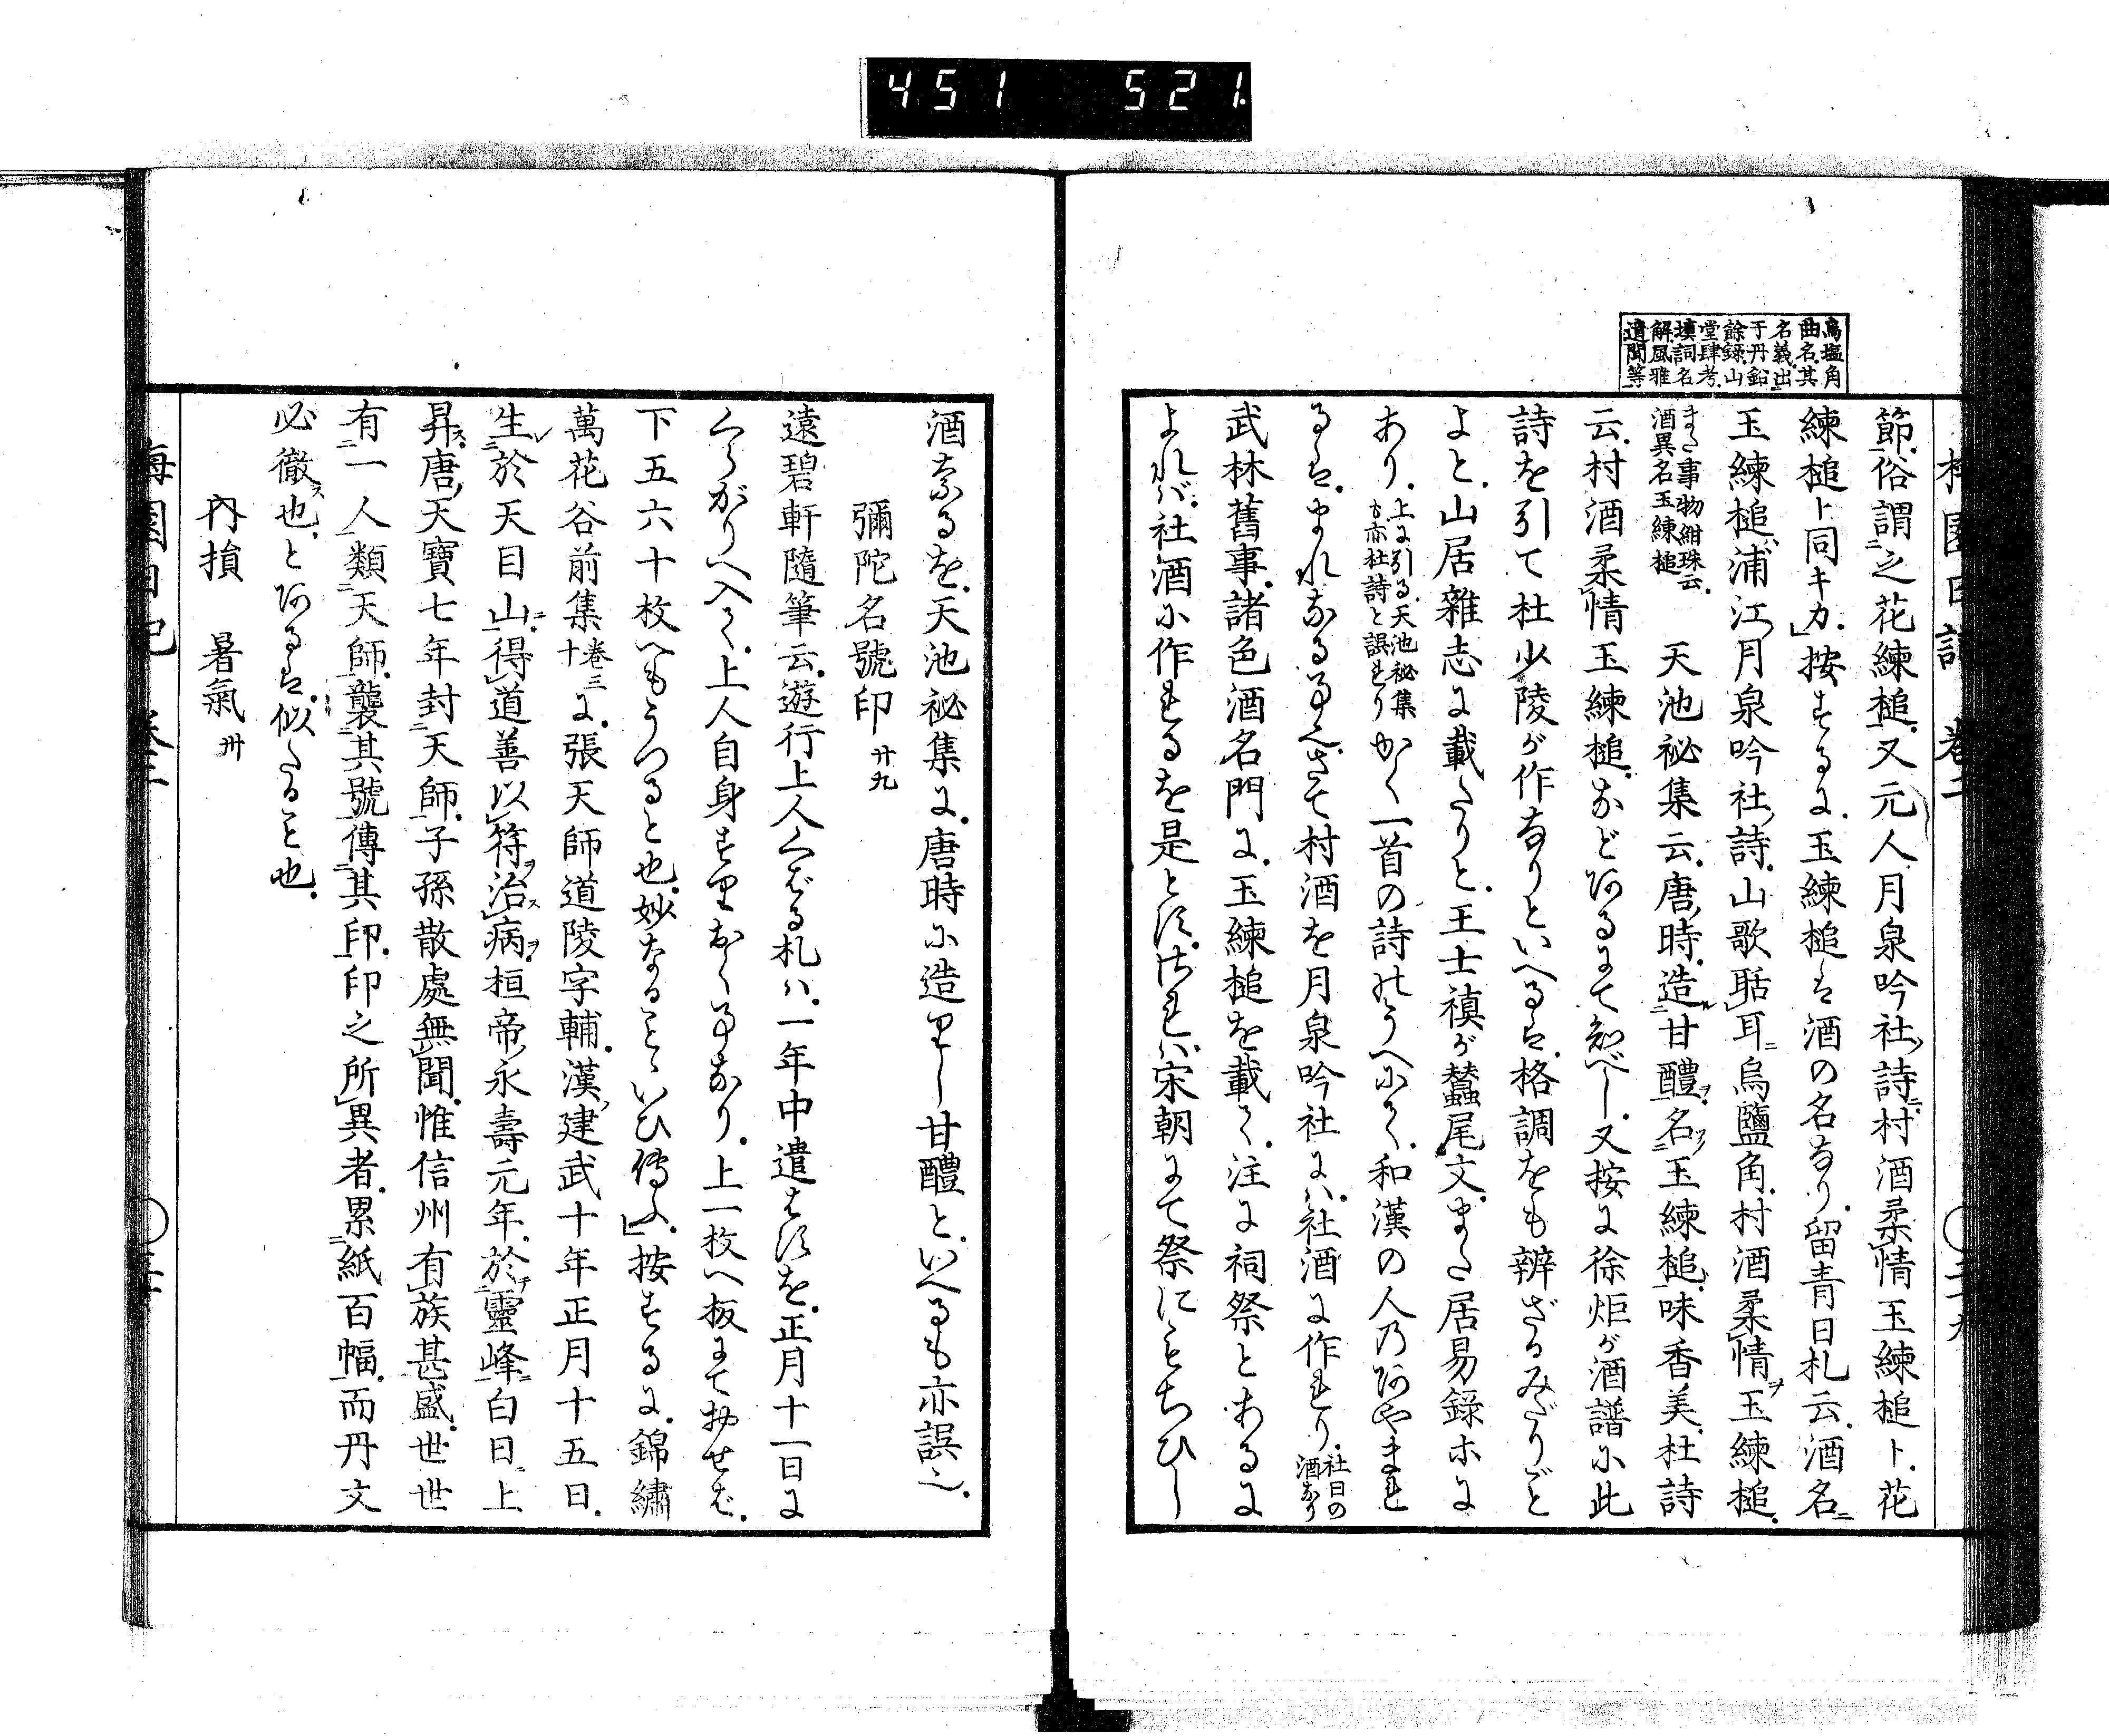 451 521.
高塩角
曲名其
名義出
于丹鉛
餘録山
堂肆考
填詞名
解風雅
遺聞等
節俗謂之花練槌又元人月泉吟社詩村酒柔情玉練槌ト花
練槌ト同キカ按ずるに玉練槌は酒の名なり留青日札云酒名
玉練槌浦江月泉吟社詩山歌聒耳烏鹽角村酒柔情玉練槌
また事物紺珠云
酒異名玉練槌
天池祕集云唐時造甘醴名玉練槌味香美杜詩
云村酒柔情玉練槌などあるにて知べし又按に徐炬が酒譜に此
詩を引て杜少陵が作なりといへるは格調をも辨ざるみだりご
よと山居雜志に載たりと王士禛が蠶尾文また居易録ホに
あり
上に引る天池祕集
も亦杜詩と誤れり
かく一首の詩のうへにて和漢の人乃あやまれ
るはまれなる事也さて村酒を月泉吟社には社酒に作れり
社日の
酒なり
武林舊事諸色酒名門に玉練槌を載て注に祠祭とあるに
よれば社酒に作れるを是とすされば宋朝にて祭にもちひし
酒なるを天池祕集に唐時に造りし甘醴といへるも亦誤也
彌陀名號印 廿九
遠碧軒隨筆云遊行上人くばる札ハ一年中遣はすを正月十一日に
くらがりへ入て上人自身すりおく事なり上一枚へ板にておせば
下五六十枚へもうつると也妙なることゝいひ傳ふ按ずるに錦繡
萬花谷前集
卷三
十
に張天師道陵字輔漢建武十年正月十五日
生於天目山得道善以符治病桓帝永壽元年於靈峰白日上
昇唐天寶七年封天師子孫散處無聞惟信州有族甚盛世世
有一人類天師襲其號傳其印印之所異者累紙百幅而丹文
必徹也とあるは似たること也
內損 暑氣 卅